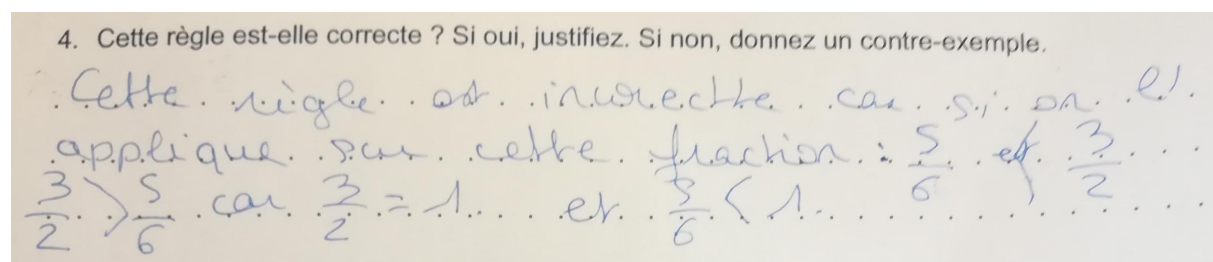 4. Cette règle est-elle correcte ? Si oui, justifiez. Si non, donnez un contre-exemple.
Cette règle est incorrectte car si on l'
applique sur cette fraction : 5/6 et 3/2
3/2 > 5/6 car 3/2 = 1 et 5/6 < 1